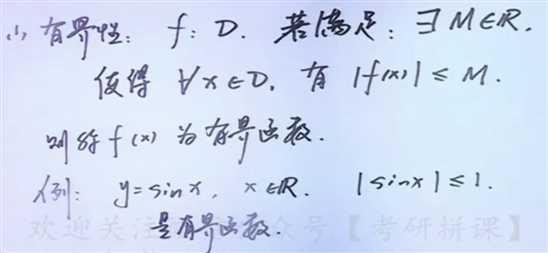 (1) 有界性: f: D. 若满足: ∃ M∈R.
使得 ∀x∈D, 有 |f(x)| ≤ M.
则称 f(x) 为有界函数.
例: y=sinx, x∈R. |sinx| ≤ 1.
是有界函数.
欢迎关注 众号【考研拼课】